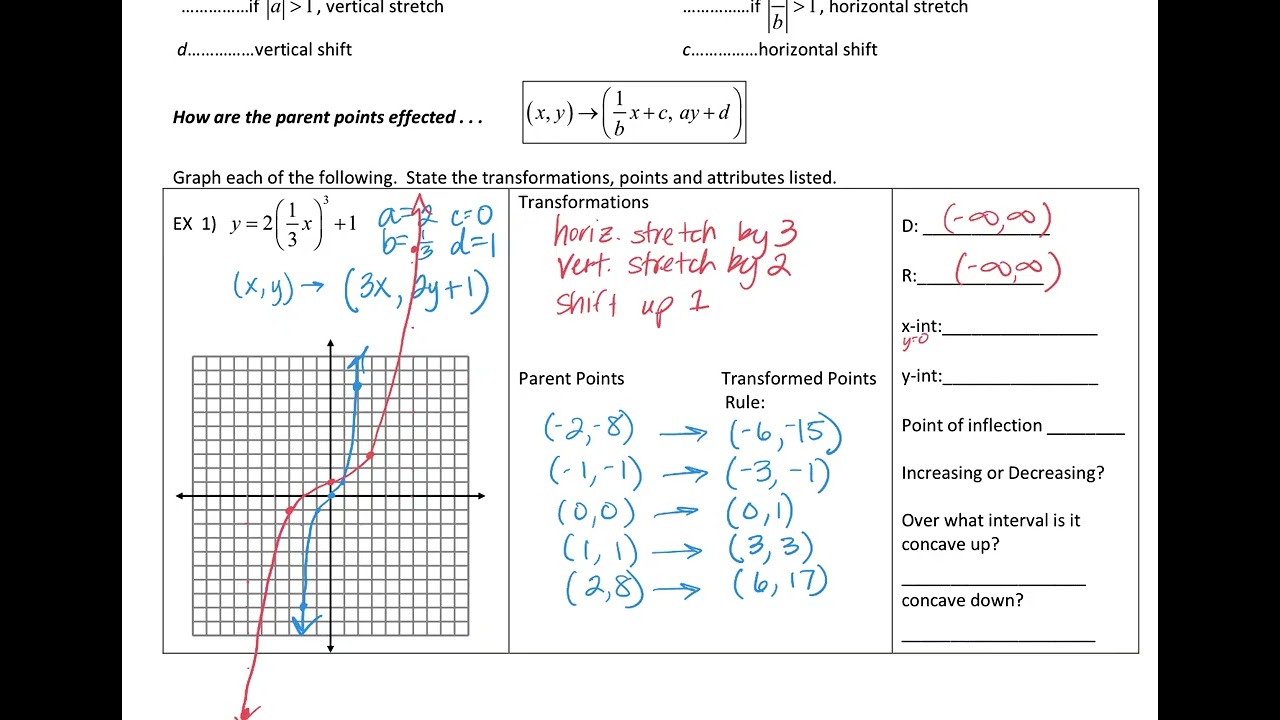 ……………if |a| > 1, vertical stretch ……………if |1/b| > 1, horizontal stretch
d……………vertical shift c……………horizontal shift
How are the parent points effected . . . (x, y) → (1/b x + c, ay + d)
Graph each of the following. State the transformations, points and attributes listed.
EX 1) y = 2(1/3 x)³ + 1
a=2 c=0
b=1/3 d=1
(x,y) → (3x, 2y+1)
Transformations
horiz. stretch by 3
vert. stretch by 2
shift up 1
Parent Points Transformed Points
Rule:
(-2,-8) → (-6,-15)
(-1,-1) → (-3,-1)
(0,0) → (0,1)
(1,1) → (3,3)
(2,8) → (6,17)
D: (-∞,∞)
R: (-∞,∞)
x-int:
y=0
y-int:
Point of inflection
Increasing or Decreasing?
Over what interval is it
concave up?
concave down?